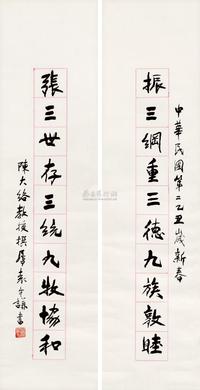 中華民國第二乙丑歲新春
振三綱重三德九族敦睦
張三世存三統九牧協和
陳大絡教授撰屬袁允謙書